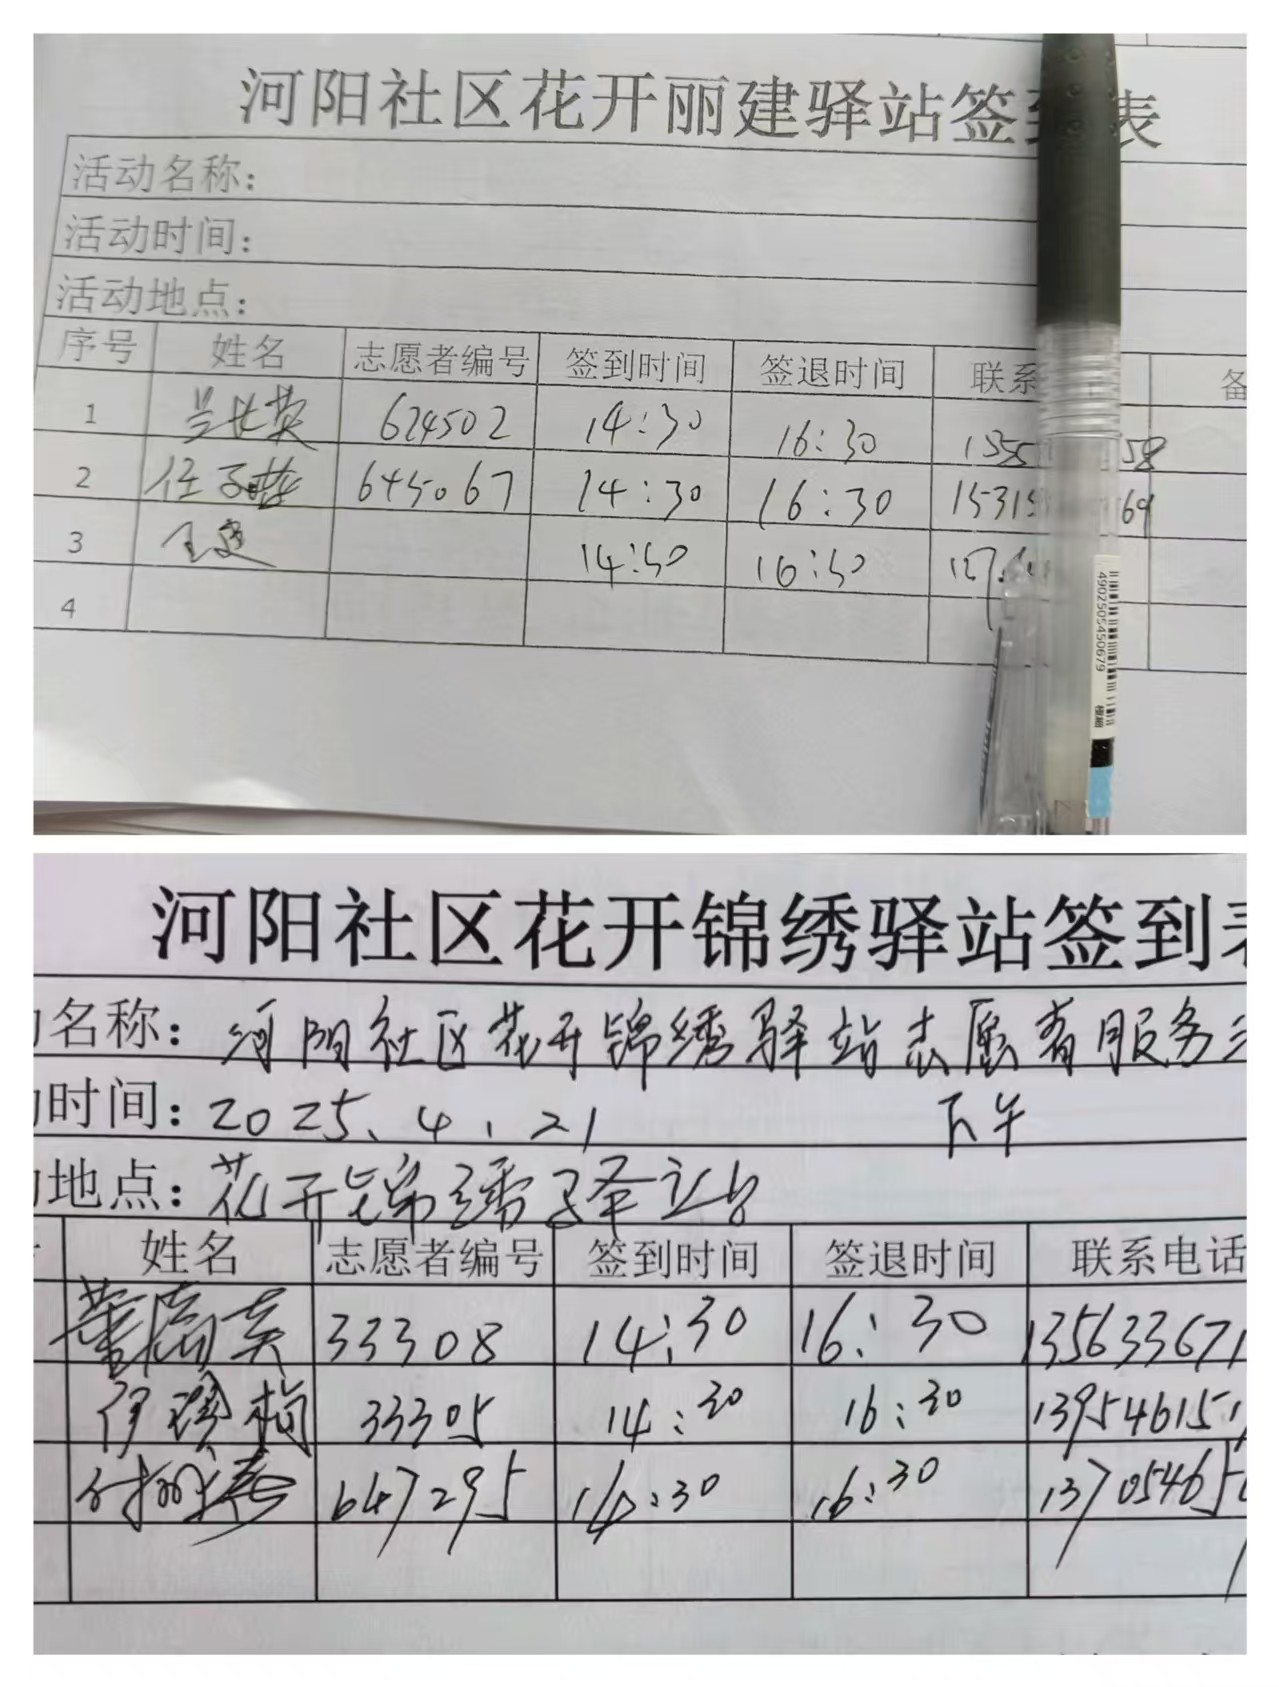 河阳社区花开丽建驿站签到表
活动名称：
活动时间：
活动地点：
序号 姓名 志愿者编号 签到时间 签退时间 联系 备
1 兰长英 624502 14:30 16:30 1355 58
2 任子喆 645067 14:30 16:30 15315 69
3 王建 14:50 16:50
4
4902505450679
极细
河阳社区花开锦绣驿站签到表
名称：河阳社区花开锦绣驿站志愿者服务
时间：2025、4、21 下午
地点：花开锦绣驿站
姓名 志愿者编号 签到时间 签退时间 联系电话
33308 14:30 16:30 135633671
伊 33305 14:30 16:30 139546151
付 647295 14:30 16:30 137054651